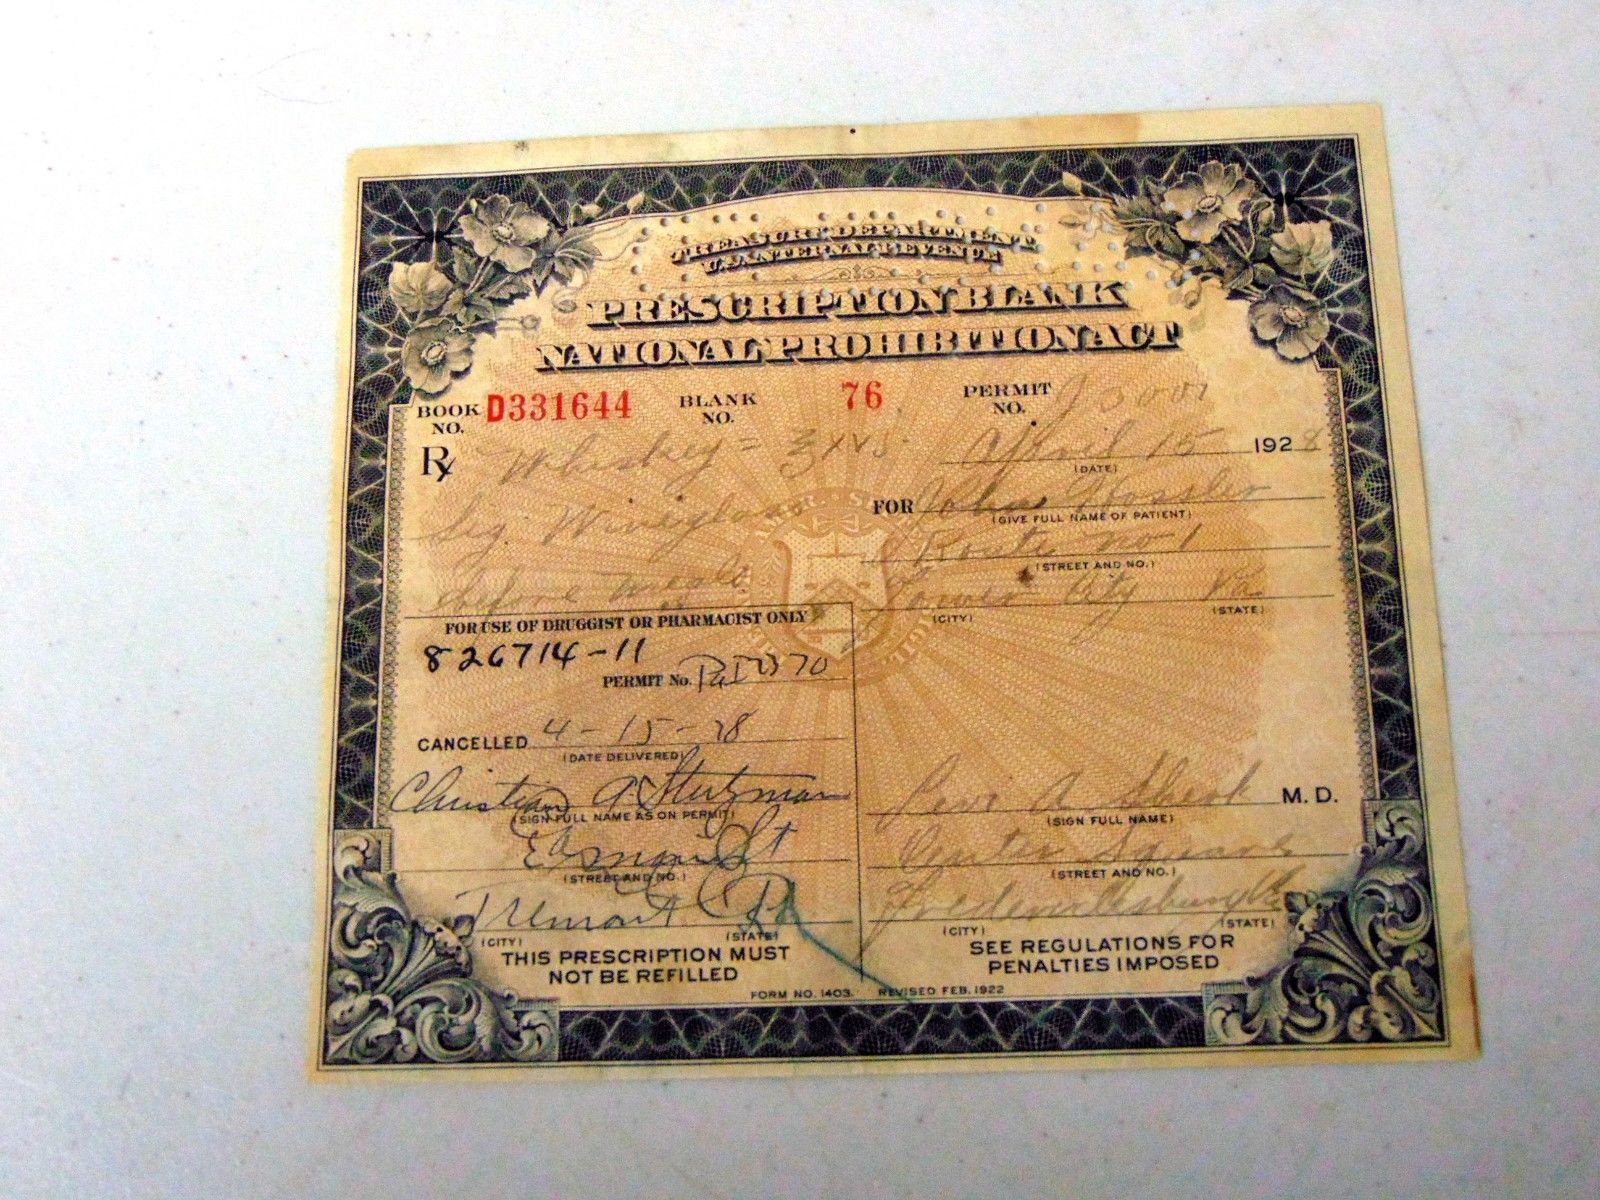 TREASURY DEPARTMENT
U.S. INTERNAL REVENUE
PRESCRIPTION BLANK
NATIONAL PROHIBITION ACT
BOOK NO. D331644 BLANK NO. 76 PERMIT NO.
Rx Whiskey = ʒxvj April 15 1928
(DATE)
Sig. Wineglass FOR John Hossler
(GIVE FULL NAME OF PATIENT)
Route No 1
(STREET AND NO.)
before meals Tower City Pa
(CITY) (STATE)
FOR USE OF DRUGGIST OR PHARMACIST ONLY
826714-11
PERMIT No.
CANCELLED 4-15-28
(DATE DELIVERED)
Christian A. Stutzman A. M.D.
(SIGN FULL NAME AS ON PERMIT) (SIGN FULL NAME)
E. Main St Center Square
(STREET AND NO.) (STREET AND NO.)
Tremont Pa Fredericksburg Pa
(CITY) (STATE) (CITY) (STATE)
THIS PRESCRIPTION MUST NOT BE REFILLED
SEE REGULATIONS FOR PENALTIES IMPOSED
FORM NO. 1403. REVISED FEB. 1922